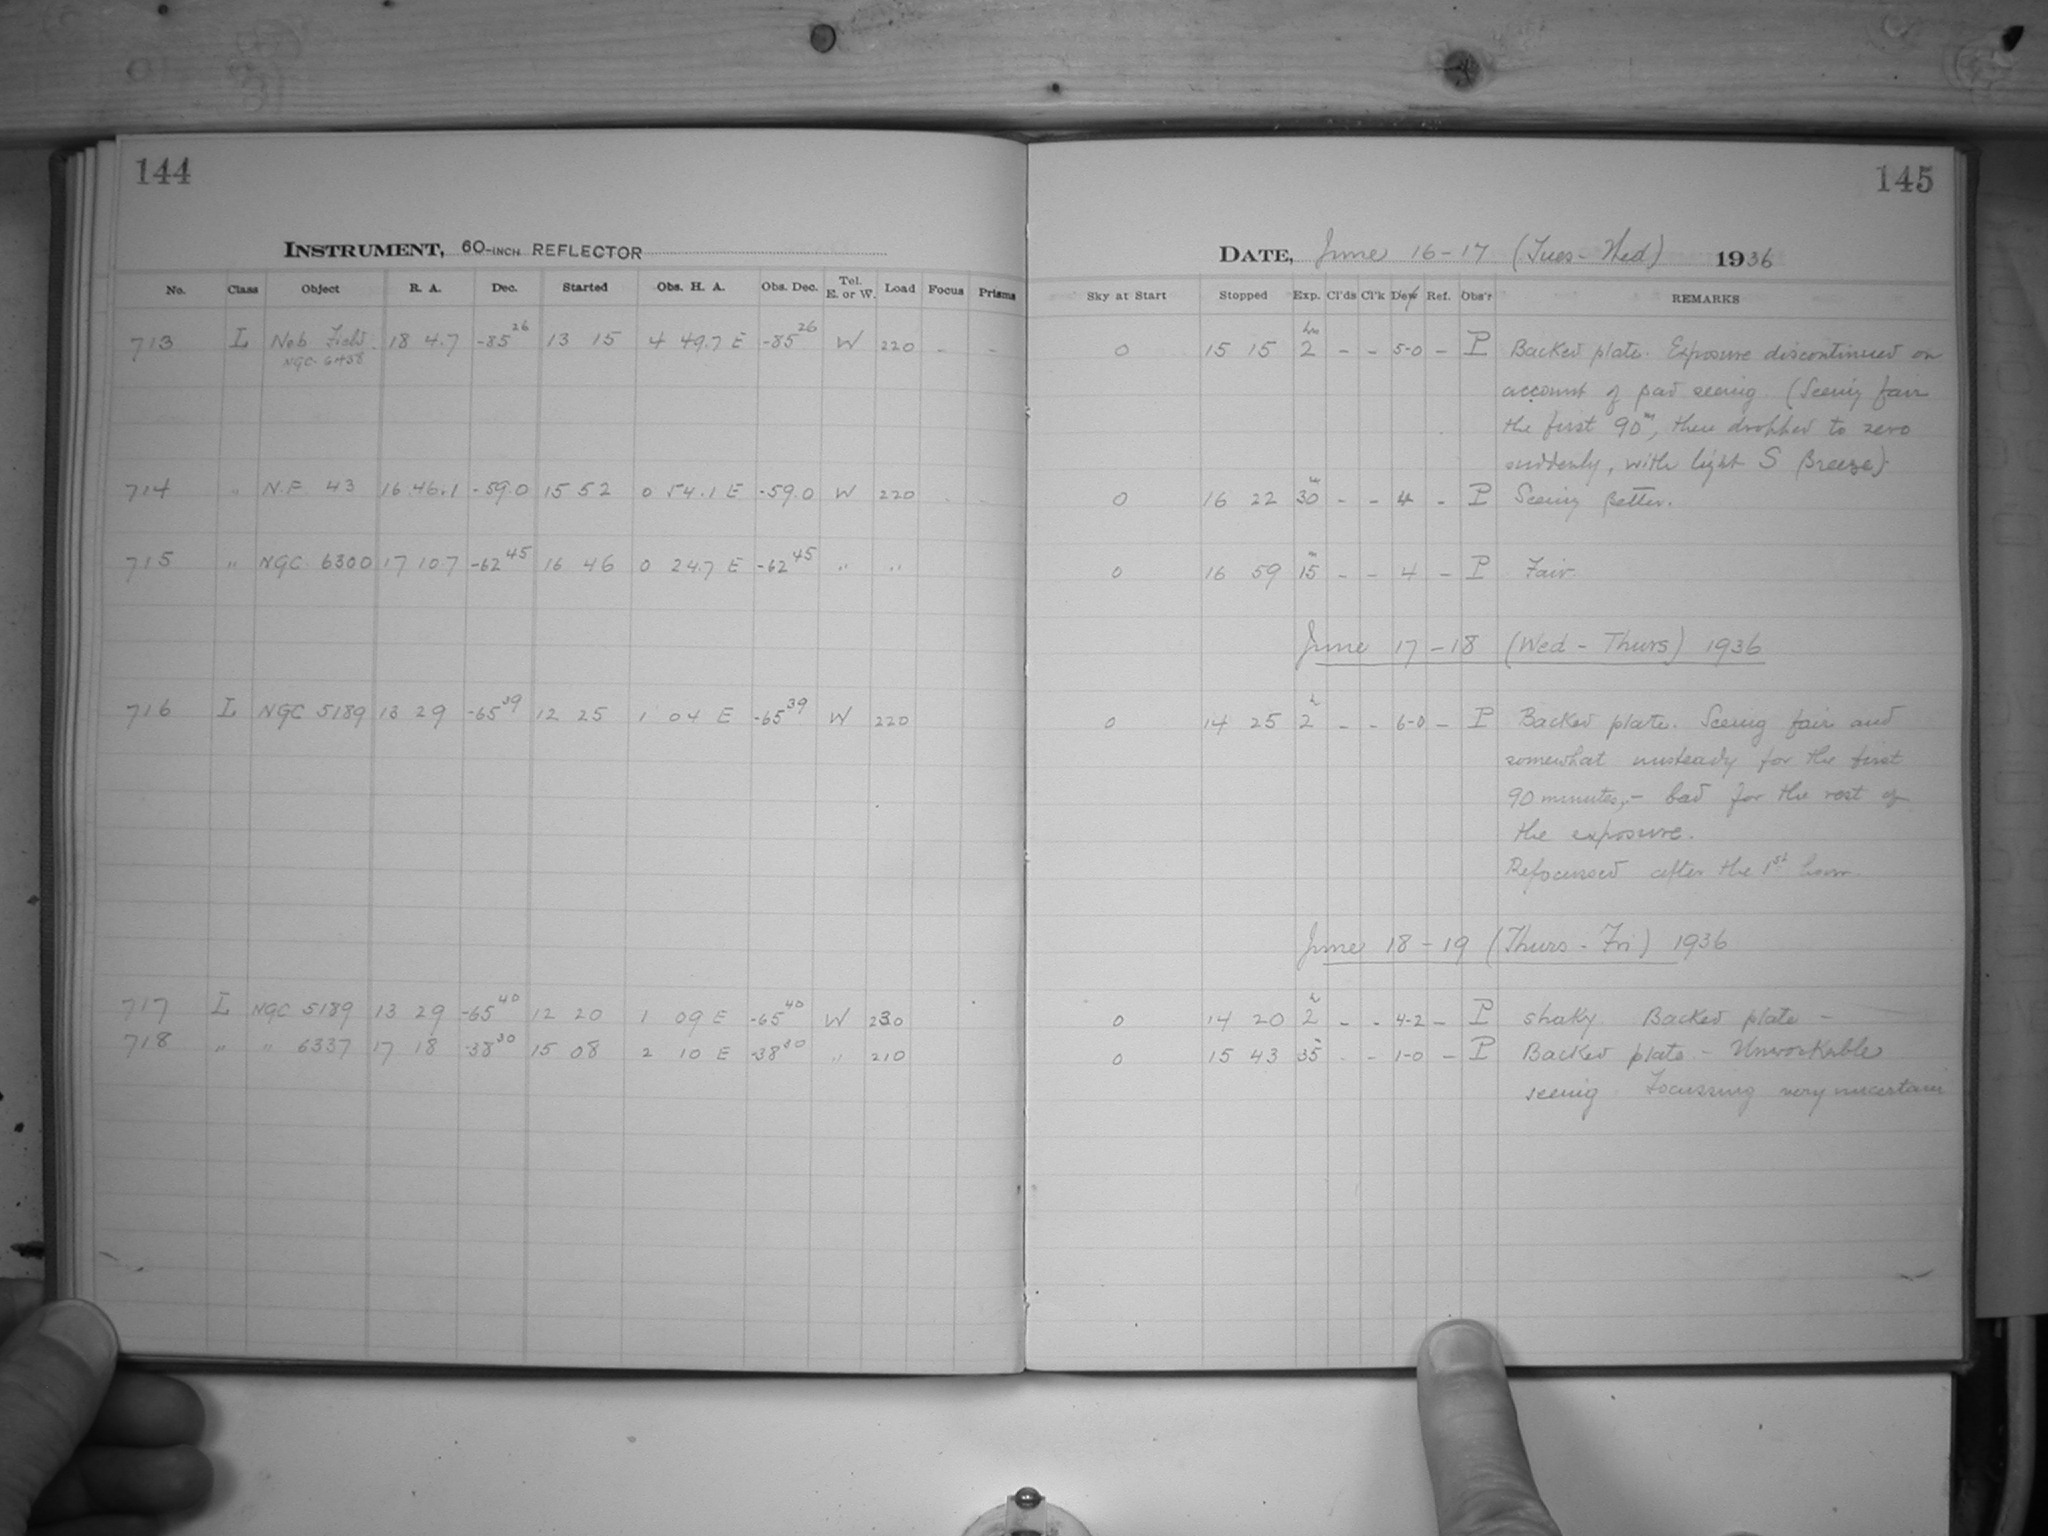 144
INSTRUMENT, 60-INCH REFLECTOR
No. Class Object R. A. Dec. Started Obs. H. A. Obs. Dec. Tel. E. or W. Load Focus Prisms
713 L Neb Field 18 4.7 -85 26 13 15 4 49.7 E -85 26 W 220 - -
NGC 6438
714 " N.F 43 16 46.1 -59.0 15 52 0 54.1 E -59.0 W 220 - -
715 " NGC 6300 17 10.7 -62 45 16 46 0 24.7 E -62 45 " "
716 L NGC 5189 13 29 -65 39 12 25 1 04 E -65 39 W 220
717 L NGC 5189 13 29 -65 40 12 20 1 09 E -65 40 W 230
718 " " 6337 17 18 -38 30 15 08 2 10 E -38 30 " 210
145
DATE, June 16-17 (Tues-Wed) 1936
Sky at Start Stopped Exp. Cl'ds Cl'k Dew Ref. Obs'r REMARKS
0 15 15 2 hrs - - 5-0 - P Backed plate. Exposure discontinued on
account of bad seeing (Seeing fair
the first 90 m, then dropped to zero
suddenly, with light S Breeze)
0 16 22 30 m - - 4 - P Seeing Better.
0 16 59 15 m - - 4 - P Fair.
June 17-18 (Wed - Thurs) 1936
0 14 25 2 h - - 6-0 - P Backed plate. Seeing fair and
somewhat unsteady for the first
90 minutes,- bad for the rest of
the exposure.
Refocussed after the 1st hour.
June 18-19 (Thurs - Fri) 1936
0 14 20 2 h - - 4-2 - P shaky. Backed plate -
0 15 43 35 m - - 1-0 - P Backed plate - Unworkable
seeing. Focussing very uncertain